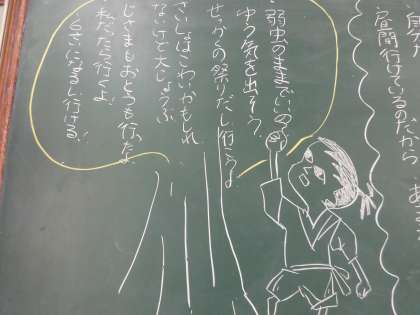 昼間行けているのだから
弱虫のままでいいの？
ゆう気を出そう。
せっかくの祭りだし行こうよ
さいしょはこわいかもしれ
ないけど大じょうぶ
じさまもおとうも行ったよ
私だったら行くよ。